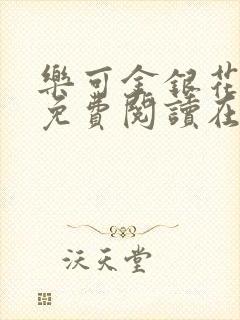 樂可金銀花
免費閱讀在
沃天堂